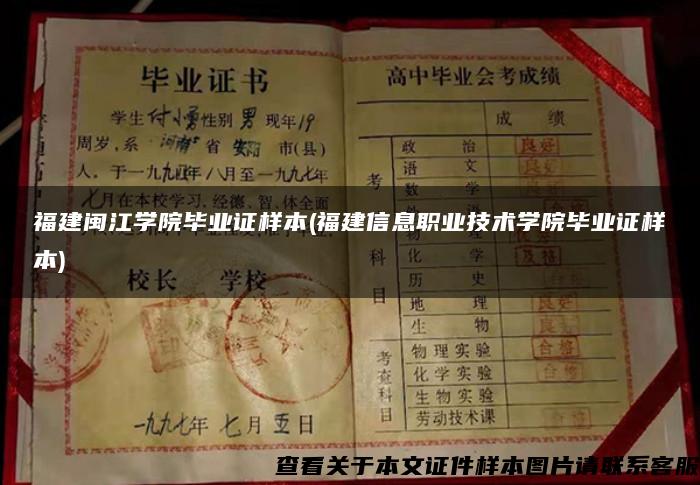 毕业证书
学生付小勇性别男现年19
周岁,系河南省安阳市(县)
人,于一九九四年八月至一九九七年
七月在本校学习,经德、智、体全面
校长 学校
一九九七年七月五日
高中毕业会考成绩
成绩
考
科
目
政治 良好
语文 良好
数学
化学 及格
历史
地理 良好
生物 良好
考查科目
物理实验 合格
化学实验 合格
生物实验
劳动技术课 合格
福建闽江学院毕业证样本(福建信息职业技术学院毕业证样
本)
查看关于本文证件样本图片请联系客服